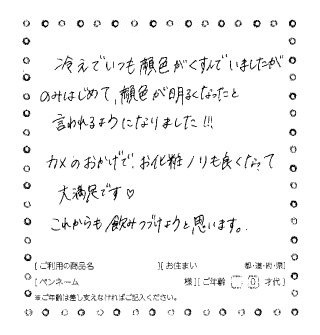 冷えでいつも顔色がくすんでいましたが
のみはじめて、顔色が明るくなったと
言われるようになりました!!!
カメのおかげで、お化粧ノリも良くなって
大満足です♡
これからも飲みつづけようと思います。
[ご利用の商品名 ][お住まい 都・道・府・県]
[ペンネーム 様][ご年齢 0才代]
※ご年齢は差し支えなければご記入ください。